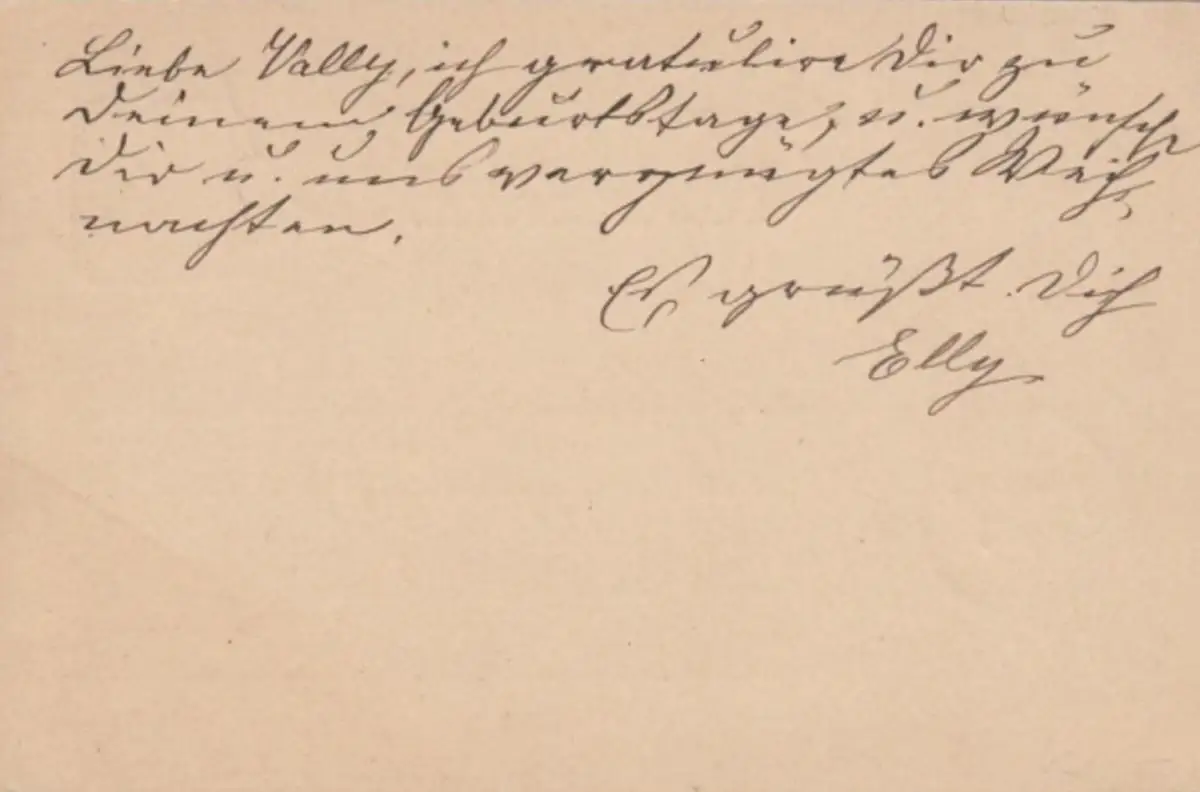 Liebe Vally, ich gratulire Dir zu
Deinem Geburtstage, u. wünsche
Dir u. uns vergnügtes Weih-
nachten.
Es grüßt Dich
Elly